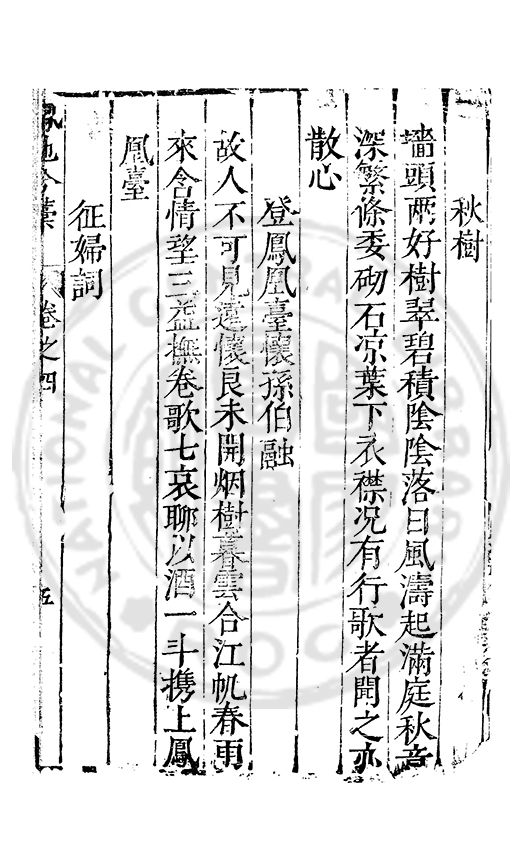 秋樹
墻頭兩好樹翠碧積陰陰落日風濤起滿庭秋意
深繁條委砌石凉葉下衣襟况有行歌者聞之亦
散心
登鳳凰臺懷孫伯融
故人不可見遠懷良未開烟樹暮雲合江帆春雨
來含情望三益撫卷歌七哀聊以酒一斗携上鳳
凰臺
征婦詞
卷之四
五